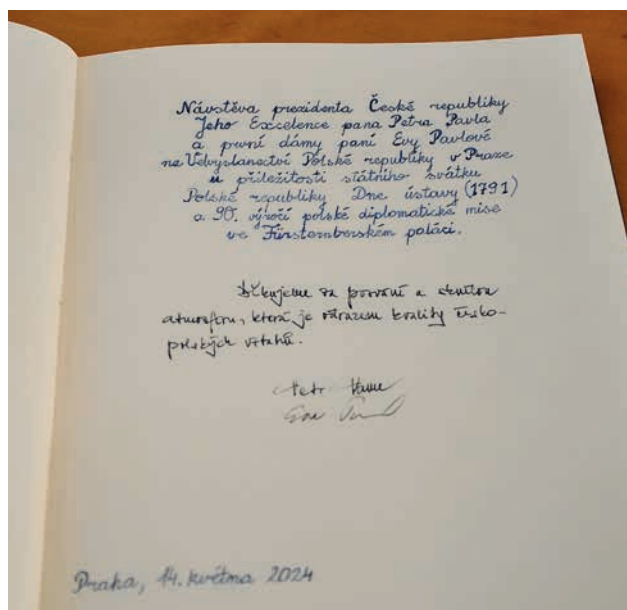 Návštěva prezidenta České republiky
Jeho Excelence pana Petra Pavla
a první dámy paní Evy Pavlové
na Velvyslanectví Polské republiky v Praze
u příležitosti státního svátku
Polské republiky Dne ústavy (1791)
a 90. výročí polské diplomatické mise
ve Fürstenberském paláci.
Děkujeme za pozvání a skvělou
atmosféru, která je obrazem kvality česko-
polských vztahů.
Petr
Eva
Praha, 14. května 2024